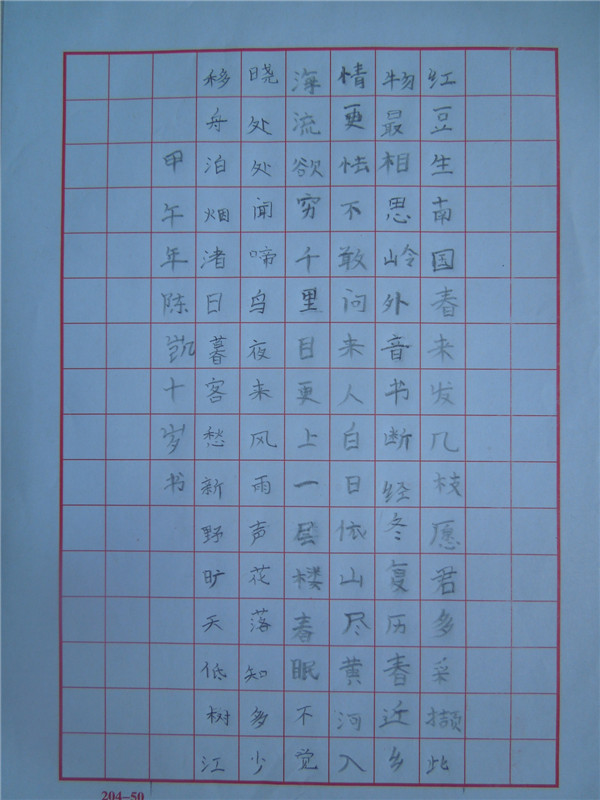 红豆生南国春来发几枝愿君多采撷此
物最相思岭外音书断经冬复历春近乡
情更怯不敢问来人白日依山尽黄河入
海流欲穷千里目更上一层楼春眠不觉
晓处处闻啼鸟夜来风雨声花落知多少
移舟泊烟渚日暮客愁新野旷天低树江
甲午年陈凯十岁书
204-50